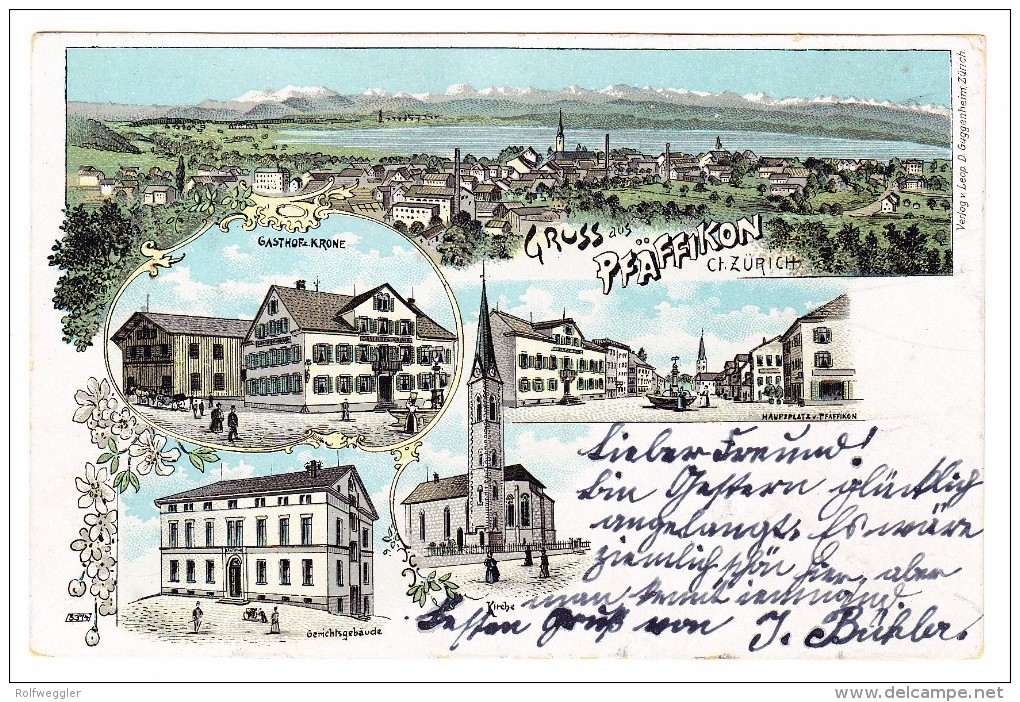 Verlag v. Leop. D. Guggenheim, Zürich.
GRUSS aus
PFÄFFIKON
Ct. ZÜRICH
GASTHOF z. KRONE
HAUPTPLATZ v. PFÄFFIKON
Lieber Freund!
bin Gestern glücklich
angelangt. Es wäre
ziemlich schön hier, aber
man kennt iemmand.
Besten Gruß von J. Bühler.
Kirche
Gerichtsgebäude
Rolfweggler
www.delcampe.net